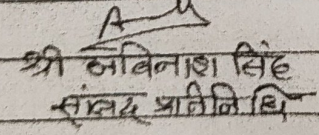 श्री अविनाश सिंह
सांसद प्रतिनिधि